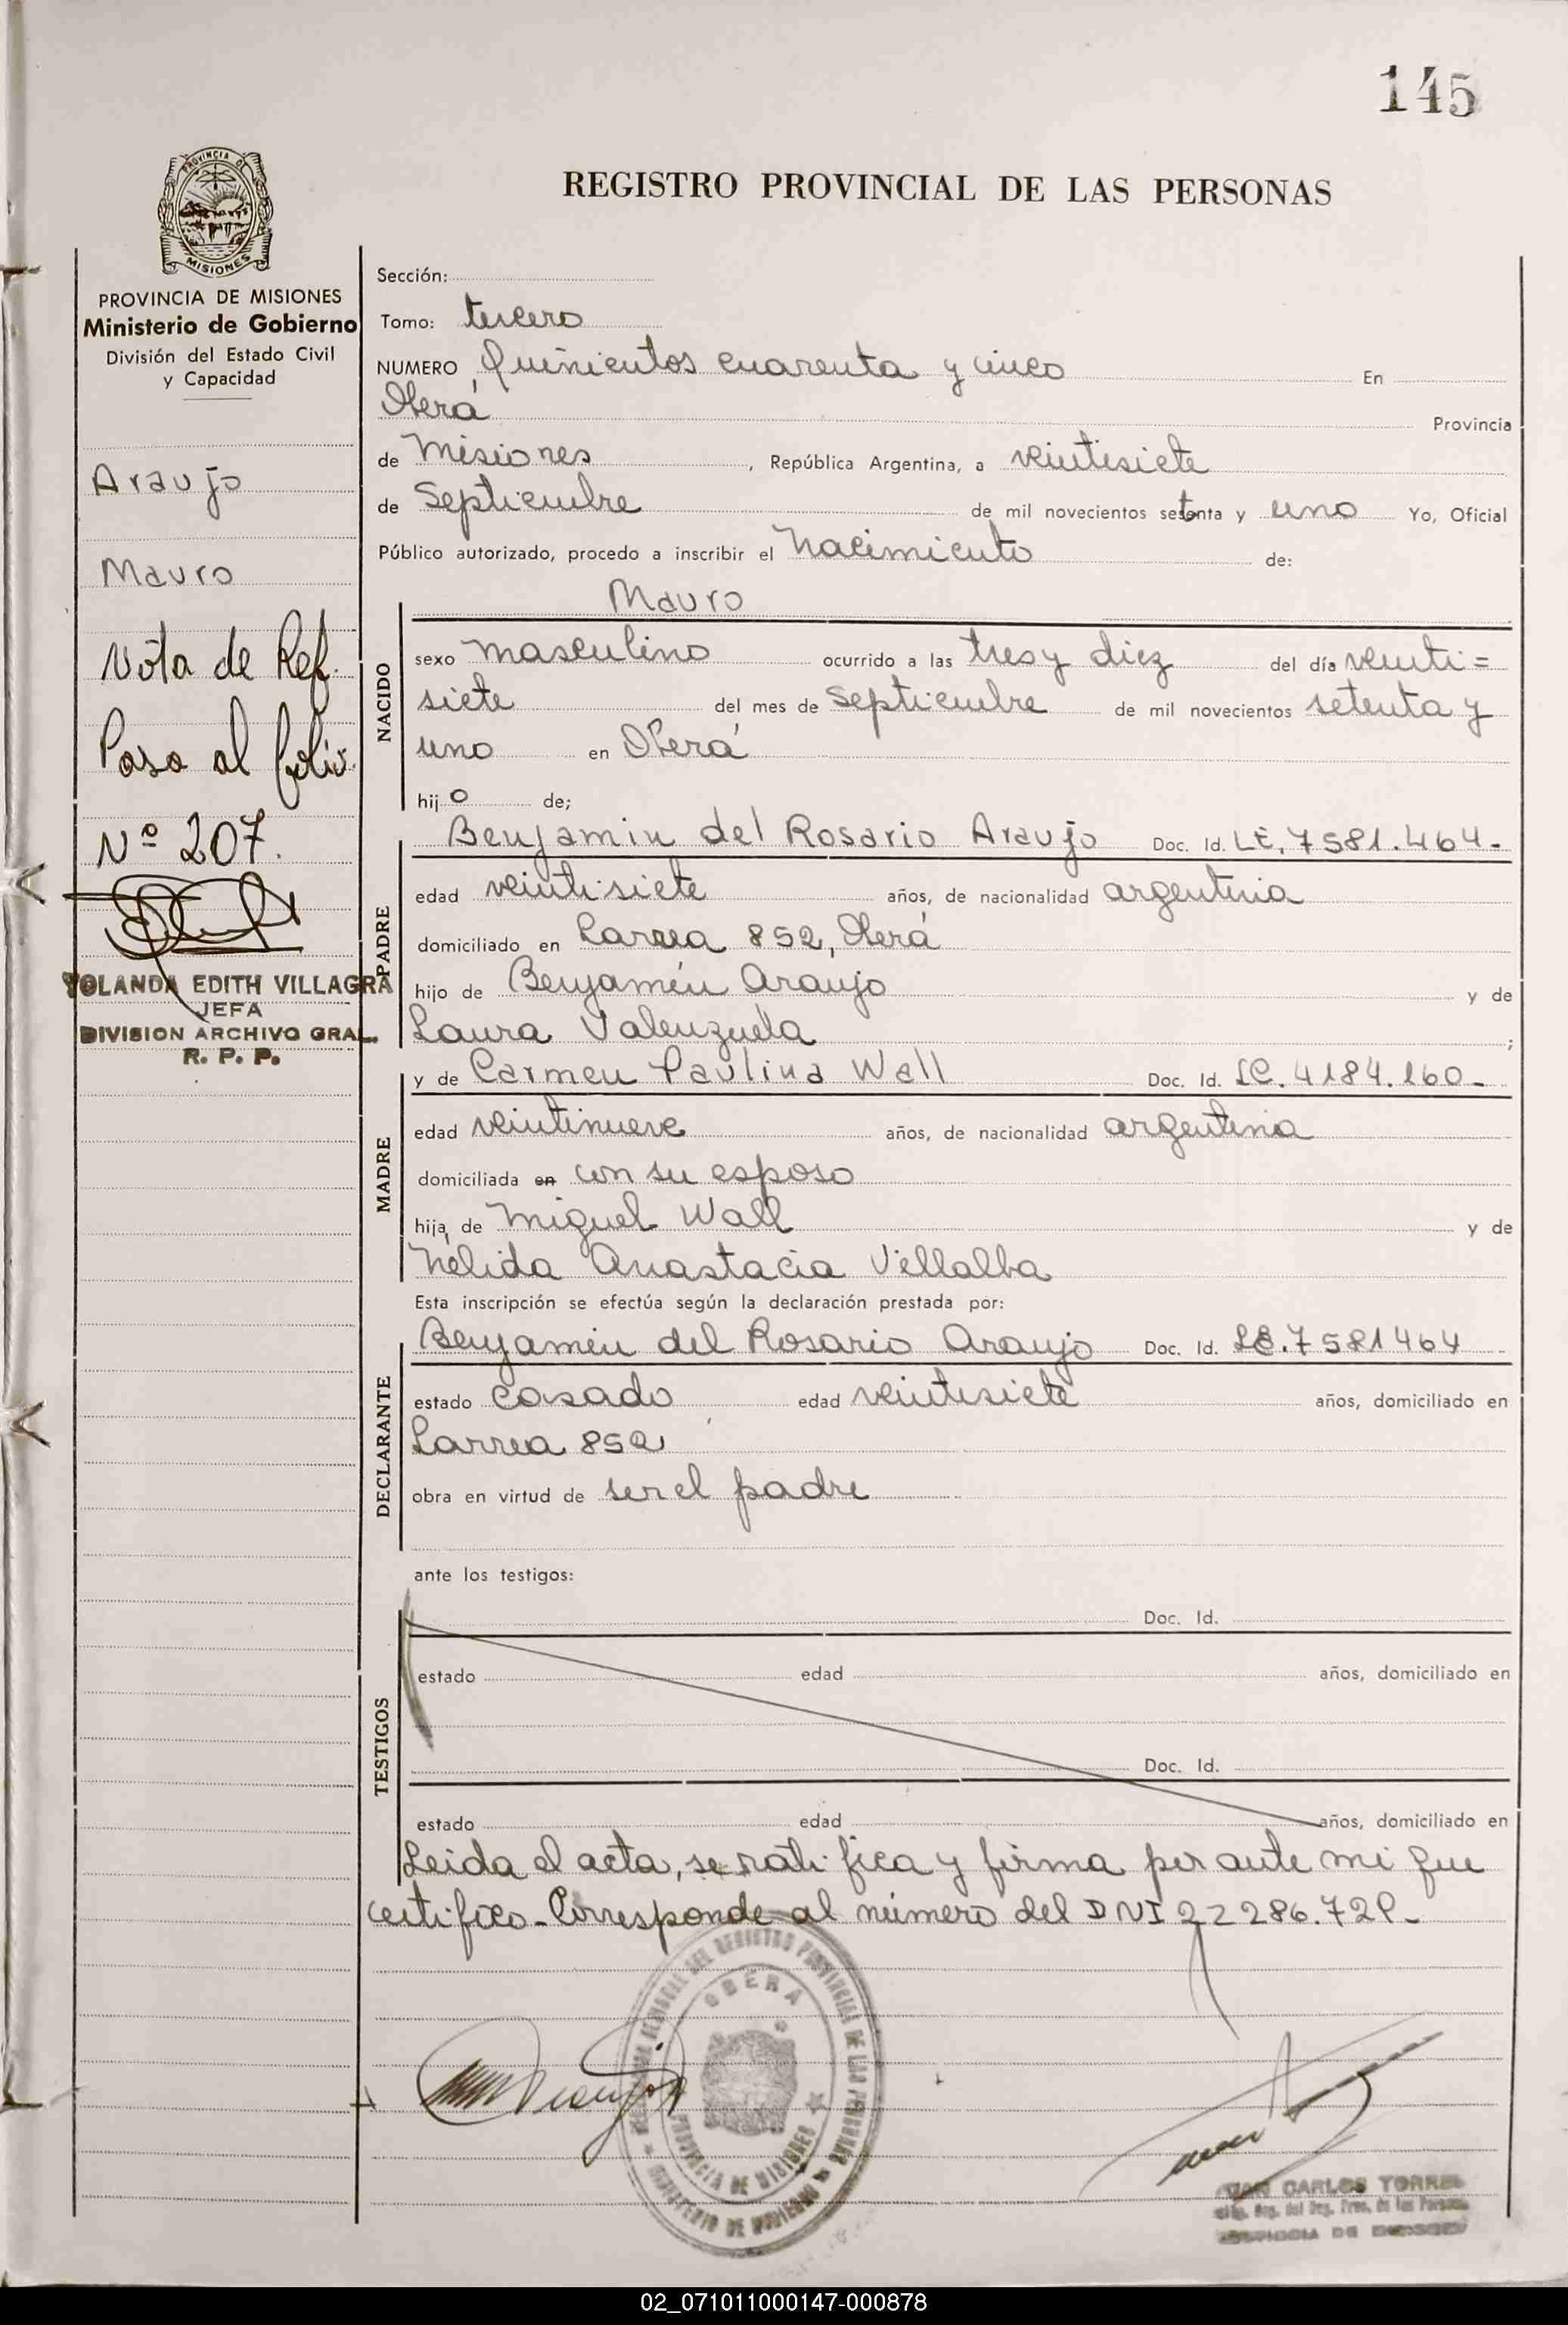 145
REGISTRO PROVINCIAL DE LAS PERSONAS
PROVINCIA DE
MISIONES
PROVINCIA DE MISIONES
Ministerio de Gobierno
División del Estado Civil
y Capacidad
Araujo
Mauro
Nota de Ref.
Paso al folio
Nº 207.
YOLANDA EDITH VILLAGRA
JEFA
DIVISION ARCHIVO GRAL.
R. P. P.
Sección:
Tomo: tercero
NUMERO Quinientos cuarenta y cinco En
Oberá Provincia
de Misiones, República Argentina, a veintisiete
de Septiembre de mil novecientos setenta y uno Yo, Oficial
Público autorizado, procedo a inscribir el Nacimiento de:
NACIDO
Mauro
sexo masculino ocurrido a las tres y diez del día veinti=
siete del mes de Septiembre de mil novecientos setenta y
uno en Oberá
hijo de;
PADRE
Benjamin del Rosario Araujo Doc. Id. LE. 7581.464.-
edad veintisiete años, de nacionalidad argentina
domiciliado en Larrea 852, Oberá
hijo de Benjamín Araujo y de
Laura Valenzuela ;
MADRE
y de Carmen Paulina Wall Doc. Id. LC. 4184.160.-
edad veintinueve años, de nacionalidad argentina
domiciliada en con su esposo
hija de Miguel Wall y de
Nélida Anastacia Villalba
Esta inscripción se efectúa según la declaración prestada por:
DECLARANTE
Benjamín del Rosario Araujo Doc. Id. LE. 7581464
estado casado edad veintisiete años, domiciliado en
Larrea 852
obra en virtud de ser el padre
ante los testigos:
TESTIGOS
Doc. Id.
estado edad años, domiciliado en
Doc. Id.
estado edad años, domiciliado en
Leida el acta, se ratifica y firma por ante mi que
certifico.- Corresponde al número del DNI 22286.
OBERA
PROVINCIA DE MISIONES
MINISTERIO DE GOBIERNO
CARLOS TORRES
02_071011000147-000878